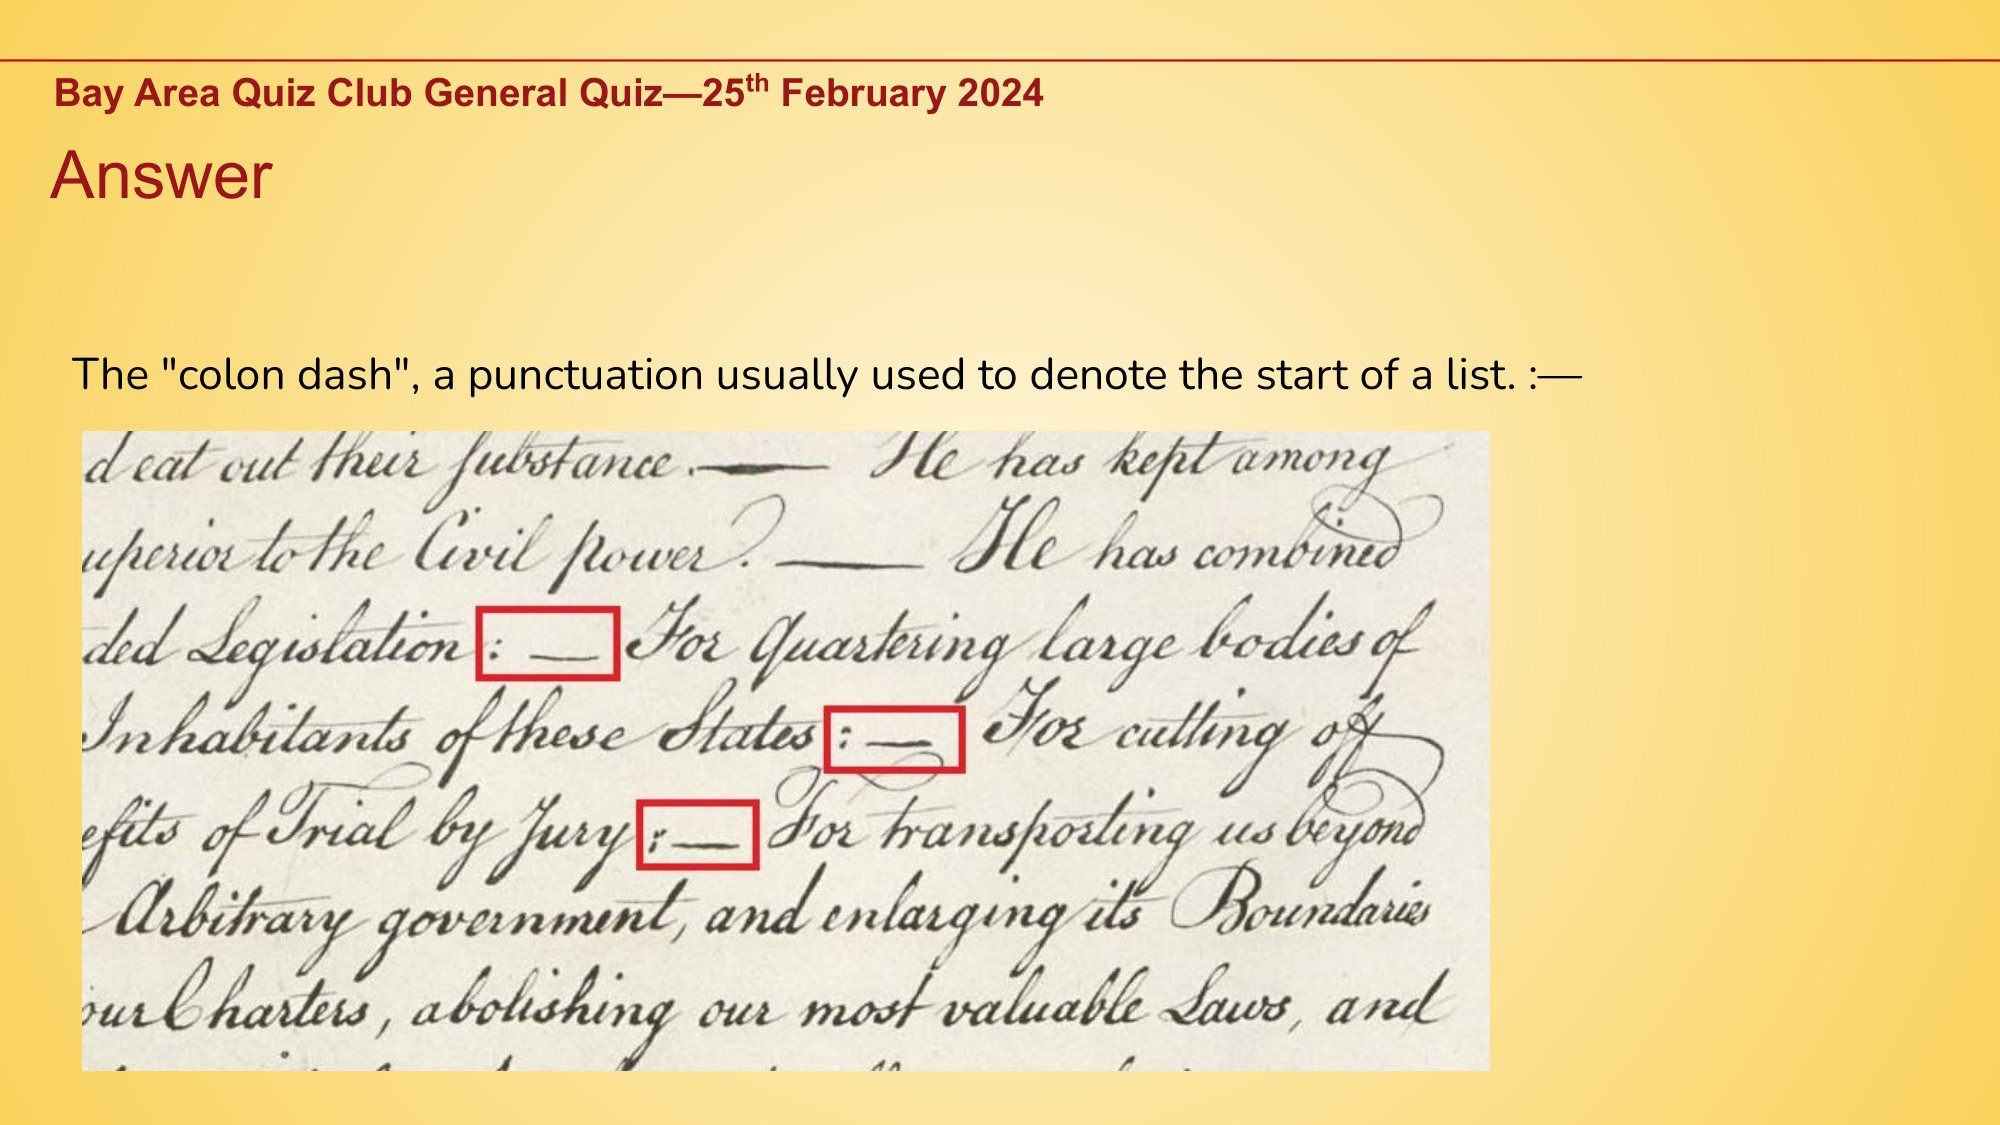 Bay Area Quiz Club General Quiz—25th February 2024
Answer
The "colon dash", a punctuation usually used to denote the start of a list. :—
d eat out their substance. — He has kept among
uperior to the Civil power. — He has combined
ded Legislation : — For Quartering large bodies of
Inhabitants of these States : — For cutting off
efits of Trial by Jury : — For transporting us beyond
Arbitrary government, and enlarging its Boundaries
our Charters, abolishing our most valuable Laws, and